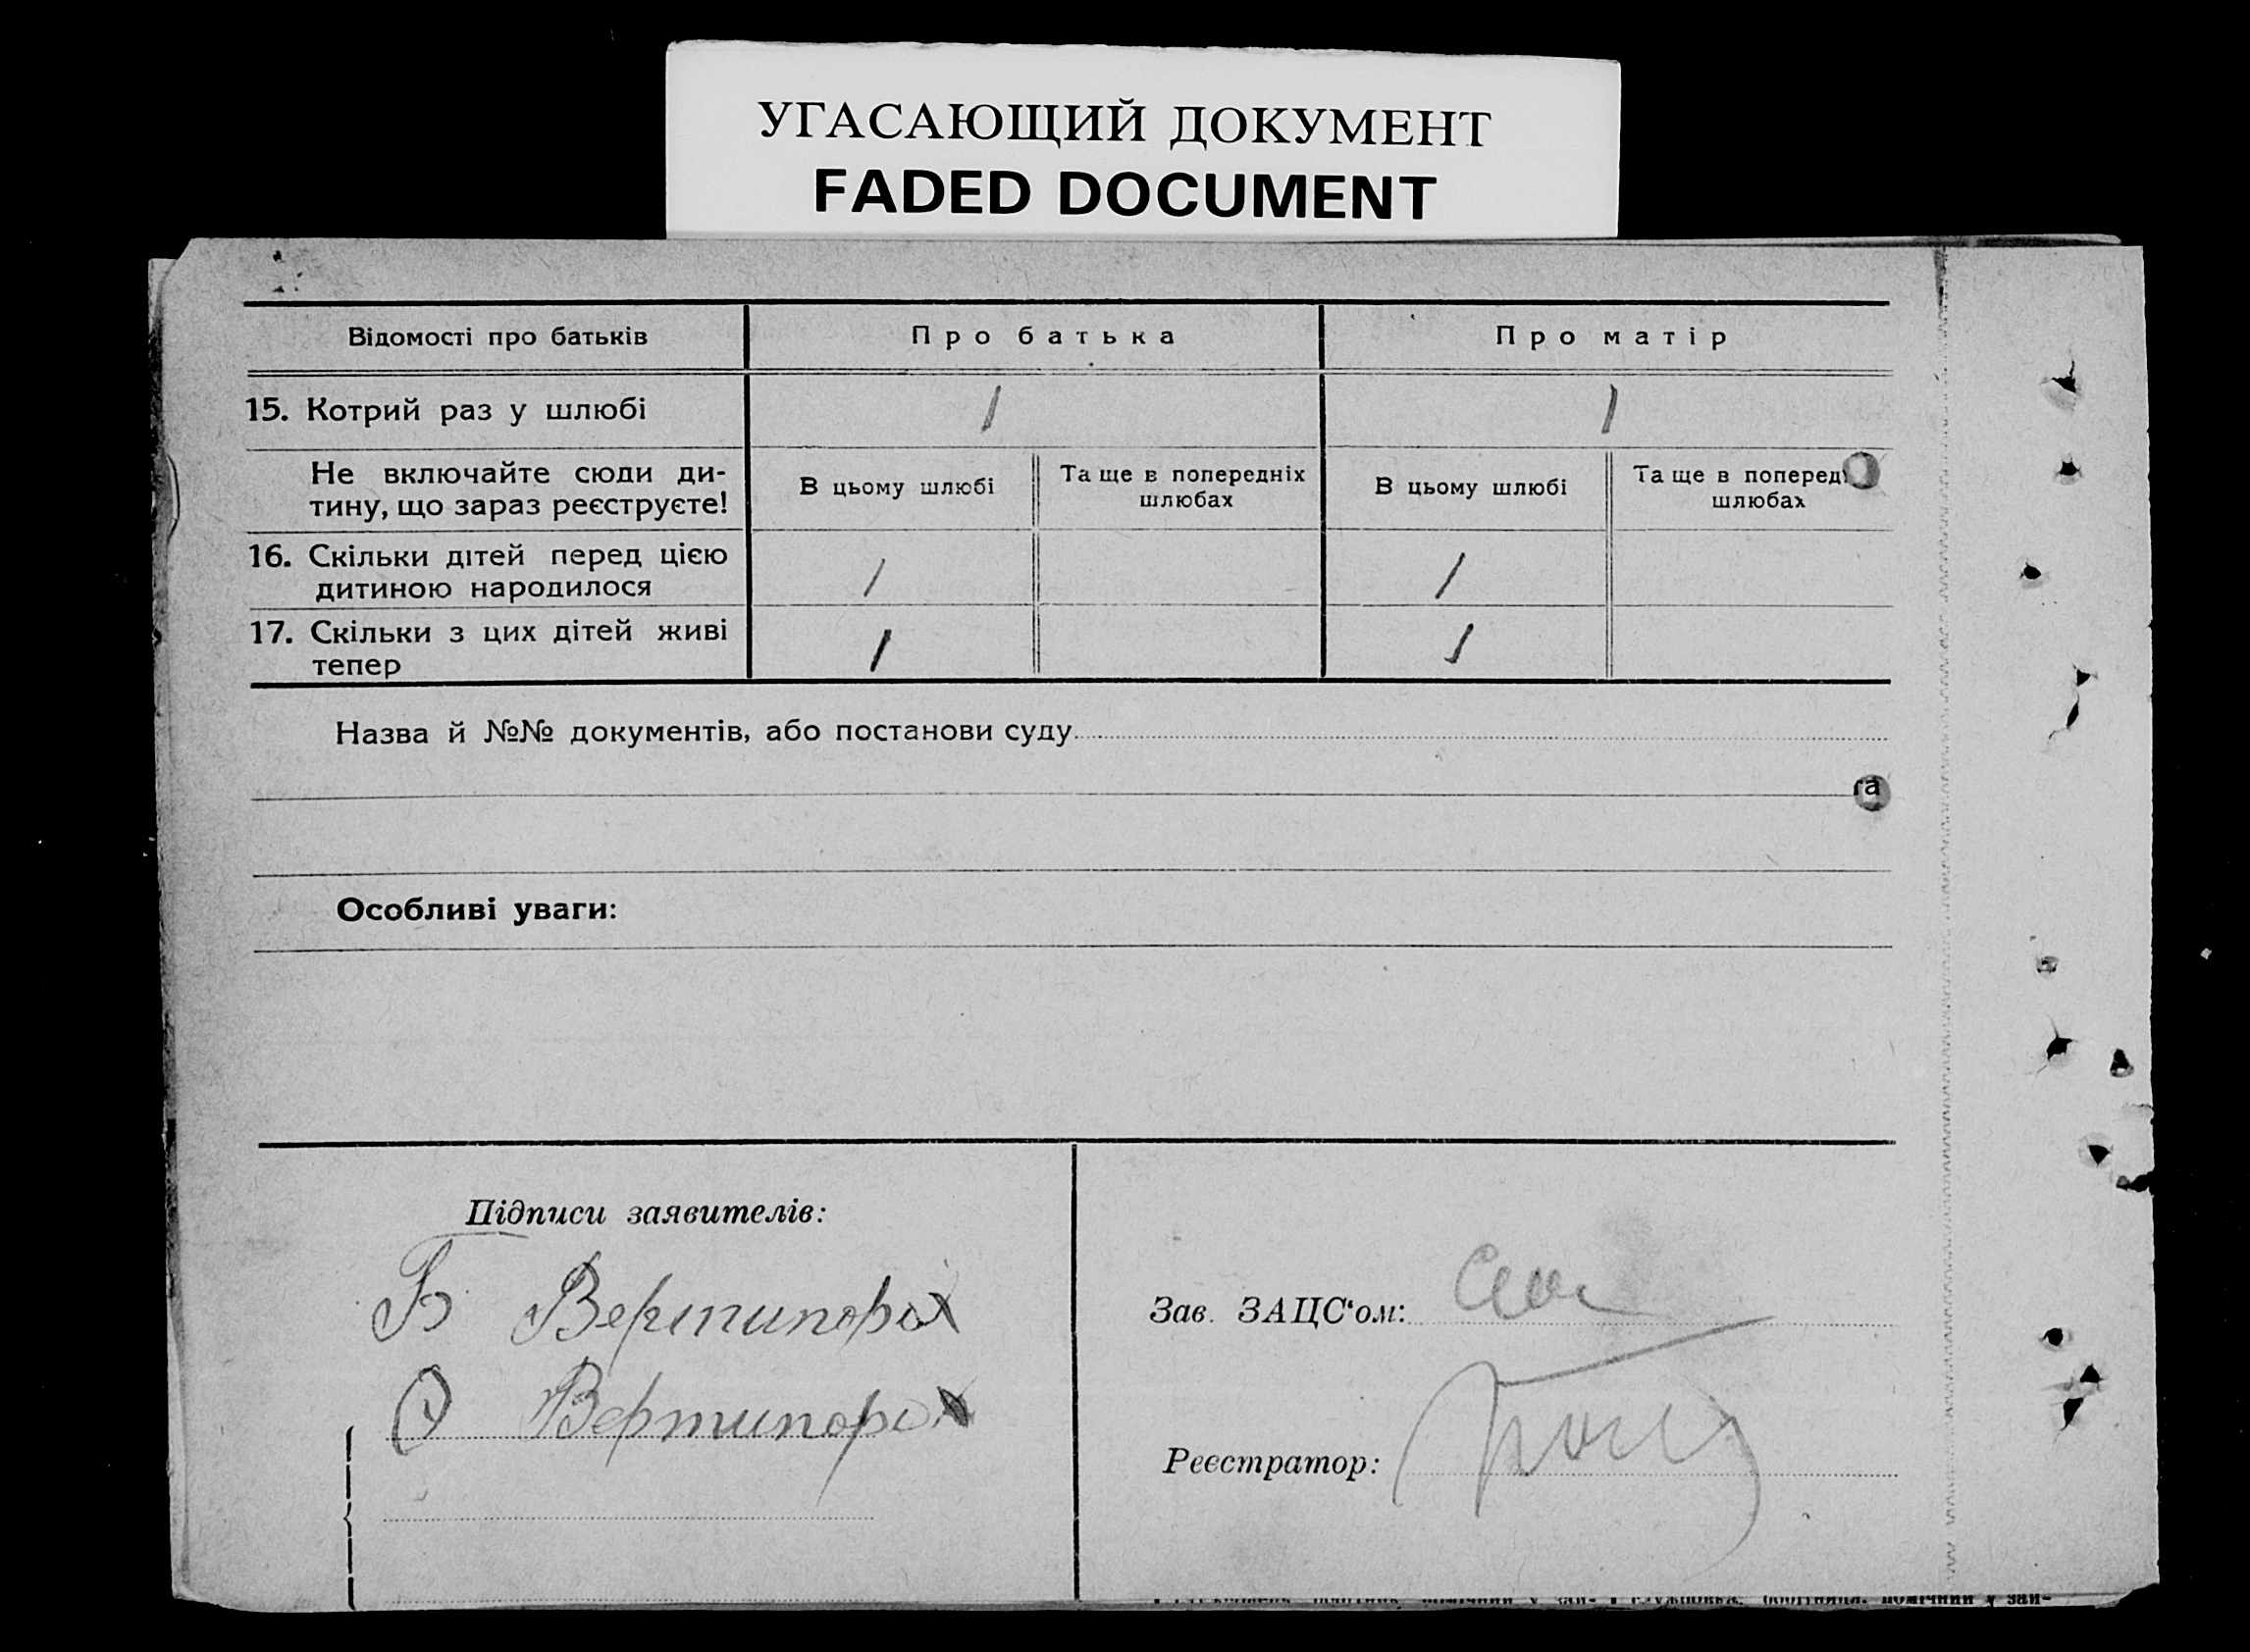 УГАСАЮЩИЙ ДОКУМЕНТ
FADED DOCUMENT
Відомості про батьків
Про батька
Про матір
15. Котрий раз у шлюбі
1
1
Не включайте сюди ди-
тину, що зараз реєструєте!
В цьому шлюбі
Та ще в попередніх
шлюбах
В цьому шлюбі
Та ще в поперед
шлюбах
16. Скільки дітей перед цією
дитиною народилося
1
1
17. Скільки з цих дітей живі
тепер
1
1
Назва й №№ документів, або постанови суду
та
Особливі уваги:
Підписи заявителів:
Б Вертипорох
О Вертипорох
Зав. ЗАЦС‘ом:
Реєстратор: